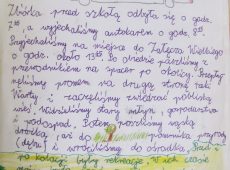 Zbiórka przed szkołą odbyła się o godz.
a wyjechaliśmy autokarem o godz. 8
Przyjechaliśmy na miejsce do Załęcza Wielkiego
o godz. około 13 Po obiedzie poszliśmy z
przewodnikiem na spacer po okolicy.
promem na drugą stronę rzeki
Warty i zaczęliśmy zwiedzać pobliską
wieś. Widzieliśmy stary młyn, gospodarstwo
i wodospad. Potem poszliśmy wąską
dróżką, aż do pomnika przyrody
(dęby) i wróciliśmy do ośrodka.
po kolacji były rekreacje. W ich czasie